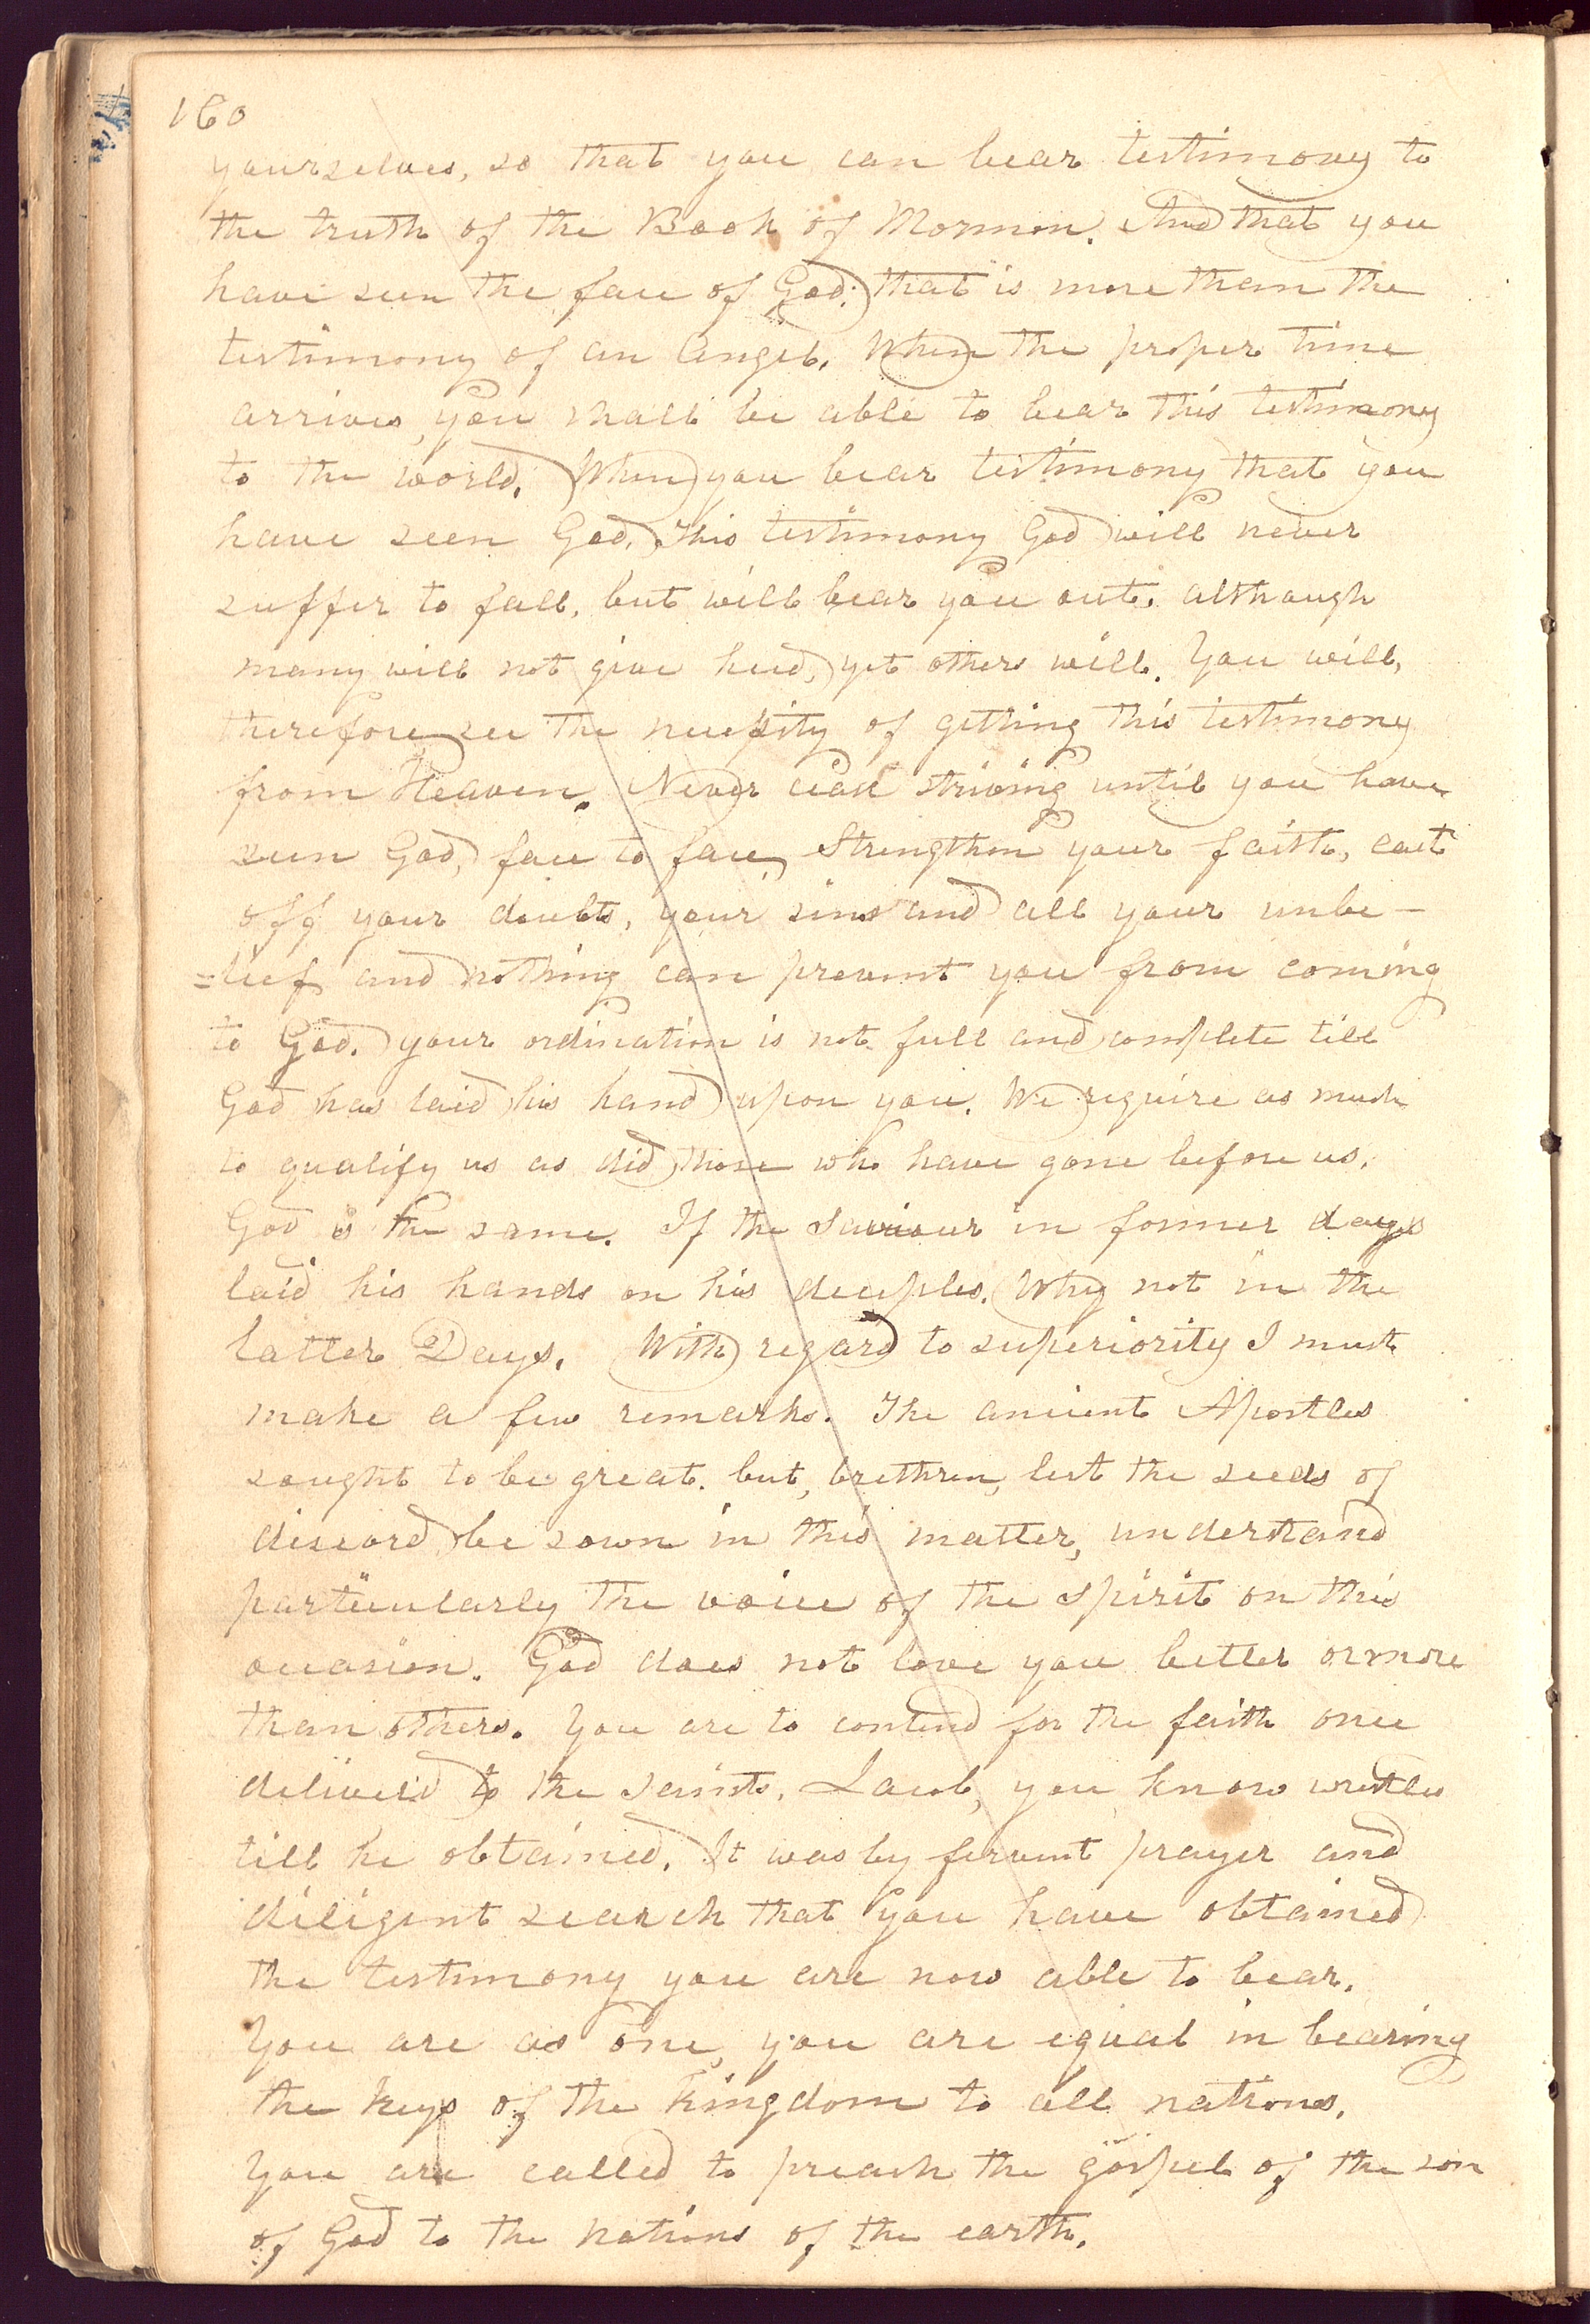 160
yourselves, so that you can bear testimony to
the truth of the Book of Mormon. And that you
have seen the face of God; that is more than the
testimony of an angel. When the proper time
arrives, you shall be able to bear this testimony
to the world. When you bear testimony that you
have seen God, this testimony God will never
suffer to fall, but will bear you out, although
many will not give heed, yet others will. You will,
therefore see the necessity of getting this testimony
from Heaven. Never cease striving until you have
seen God, face to face, Strengthen your faith, cast
off your doubts, your sins and all your unbe-
=lief and nothing can prevent you from coming
to God. your ordination is not full and complete till
God has laid his hand upon you. We require as much
to qualify us as did those who have gone before us.
God is the same. If the Saviour in former days
laid his hands on his deciples. Why not in the
latter Days. With regard to superiority I must
make a few remarks. The ancient Apostles
sought to be great. but, brethren, lest the seeds of
discord be sown in this matter, understand
particularly the voice of the spirit on this
occasion. God does not love you better or more
than others. You are to contend for the faith once
deliverd to the saints. Jacob, you know wrestled
till he obtained. It was by fervent prayer and
diligent search that you have obtained
the testimony you are now able to bear.
You are as one, you are equal in bearing
the keys of the kingdom to all nations.
You are called to preach the gospel of the son
of God to the nations of the earth.